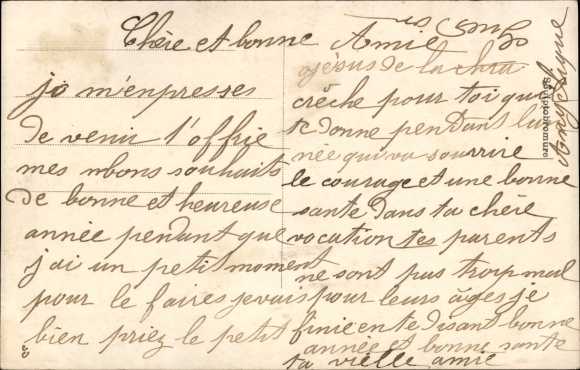 Chère et bonne Amie
je m'enpresses
de venir t'offrie
mes mbons souhaits
de bonne et heureuse
année pendant que
j'ai un petit moment
pour le faires je vais
bien priez le petit
jésus de la chra
crêche pour toi qui
te donne pendant lan
née qui va sourrire
le courage et une bonne
sante dans ta chère
vocation tes parents
ne sont pas trorp mal
pour leurs âges je
finie en te disant bonne
année et bonne sante
ta vieille amie